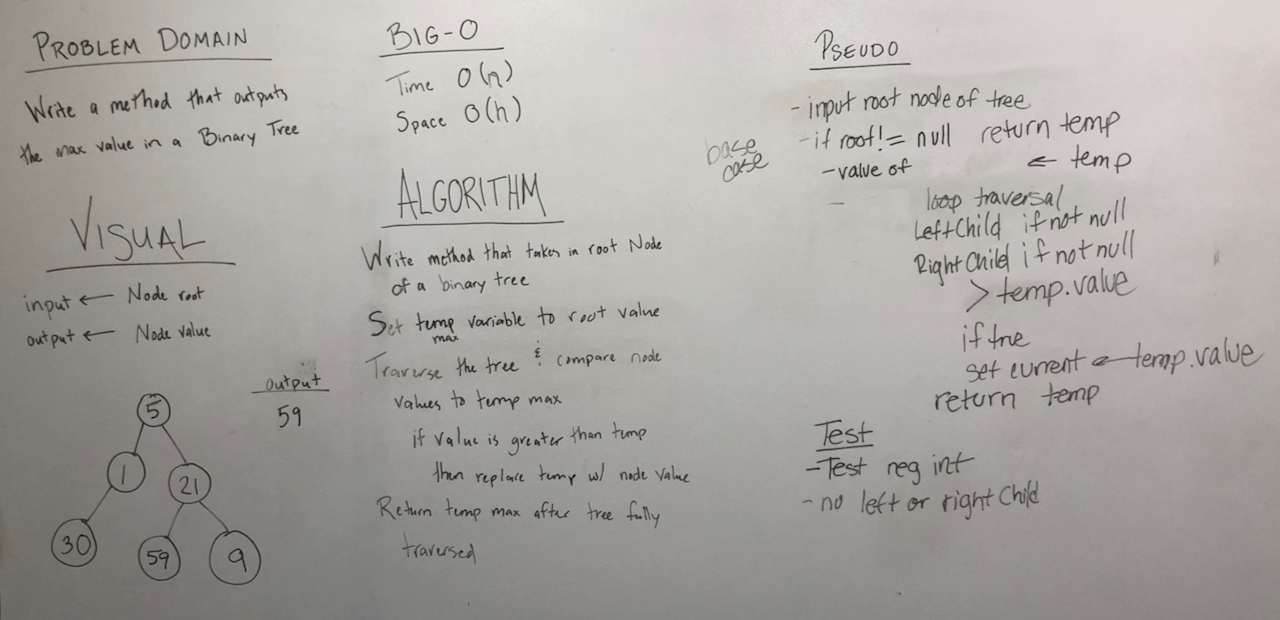 PROBLEM DOMAIN
Write a method that outputs
the max value in a Binary Tree
VISUAL
input ← Node root
output ← Node value
output
59
5
1
21
30
59
9
BIG-O
Time O(n)
Space O(h)
ALGORITHM
Write method that takes in root Node
of a binary tree
Set temp variable to root value
max
Traverse the tree & compare node
values to temp max
if value is greater than temp
then replace temp w/ node value
Return temp max after tree fully
traversed
PSEUDO
- input root node of tree
base
case
- if root != null return temp
- value of ← temp
-
loop traversal
Left Child if not null
Right Child if not null
> temp.value
if true
set current ← temp.value
return temp
Test
- Test neg int
- no left or right Child